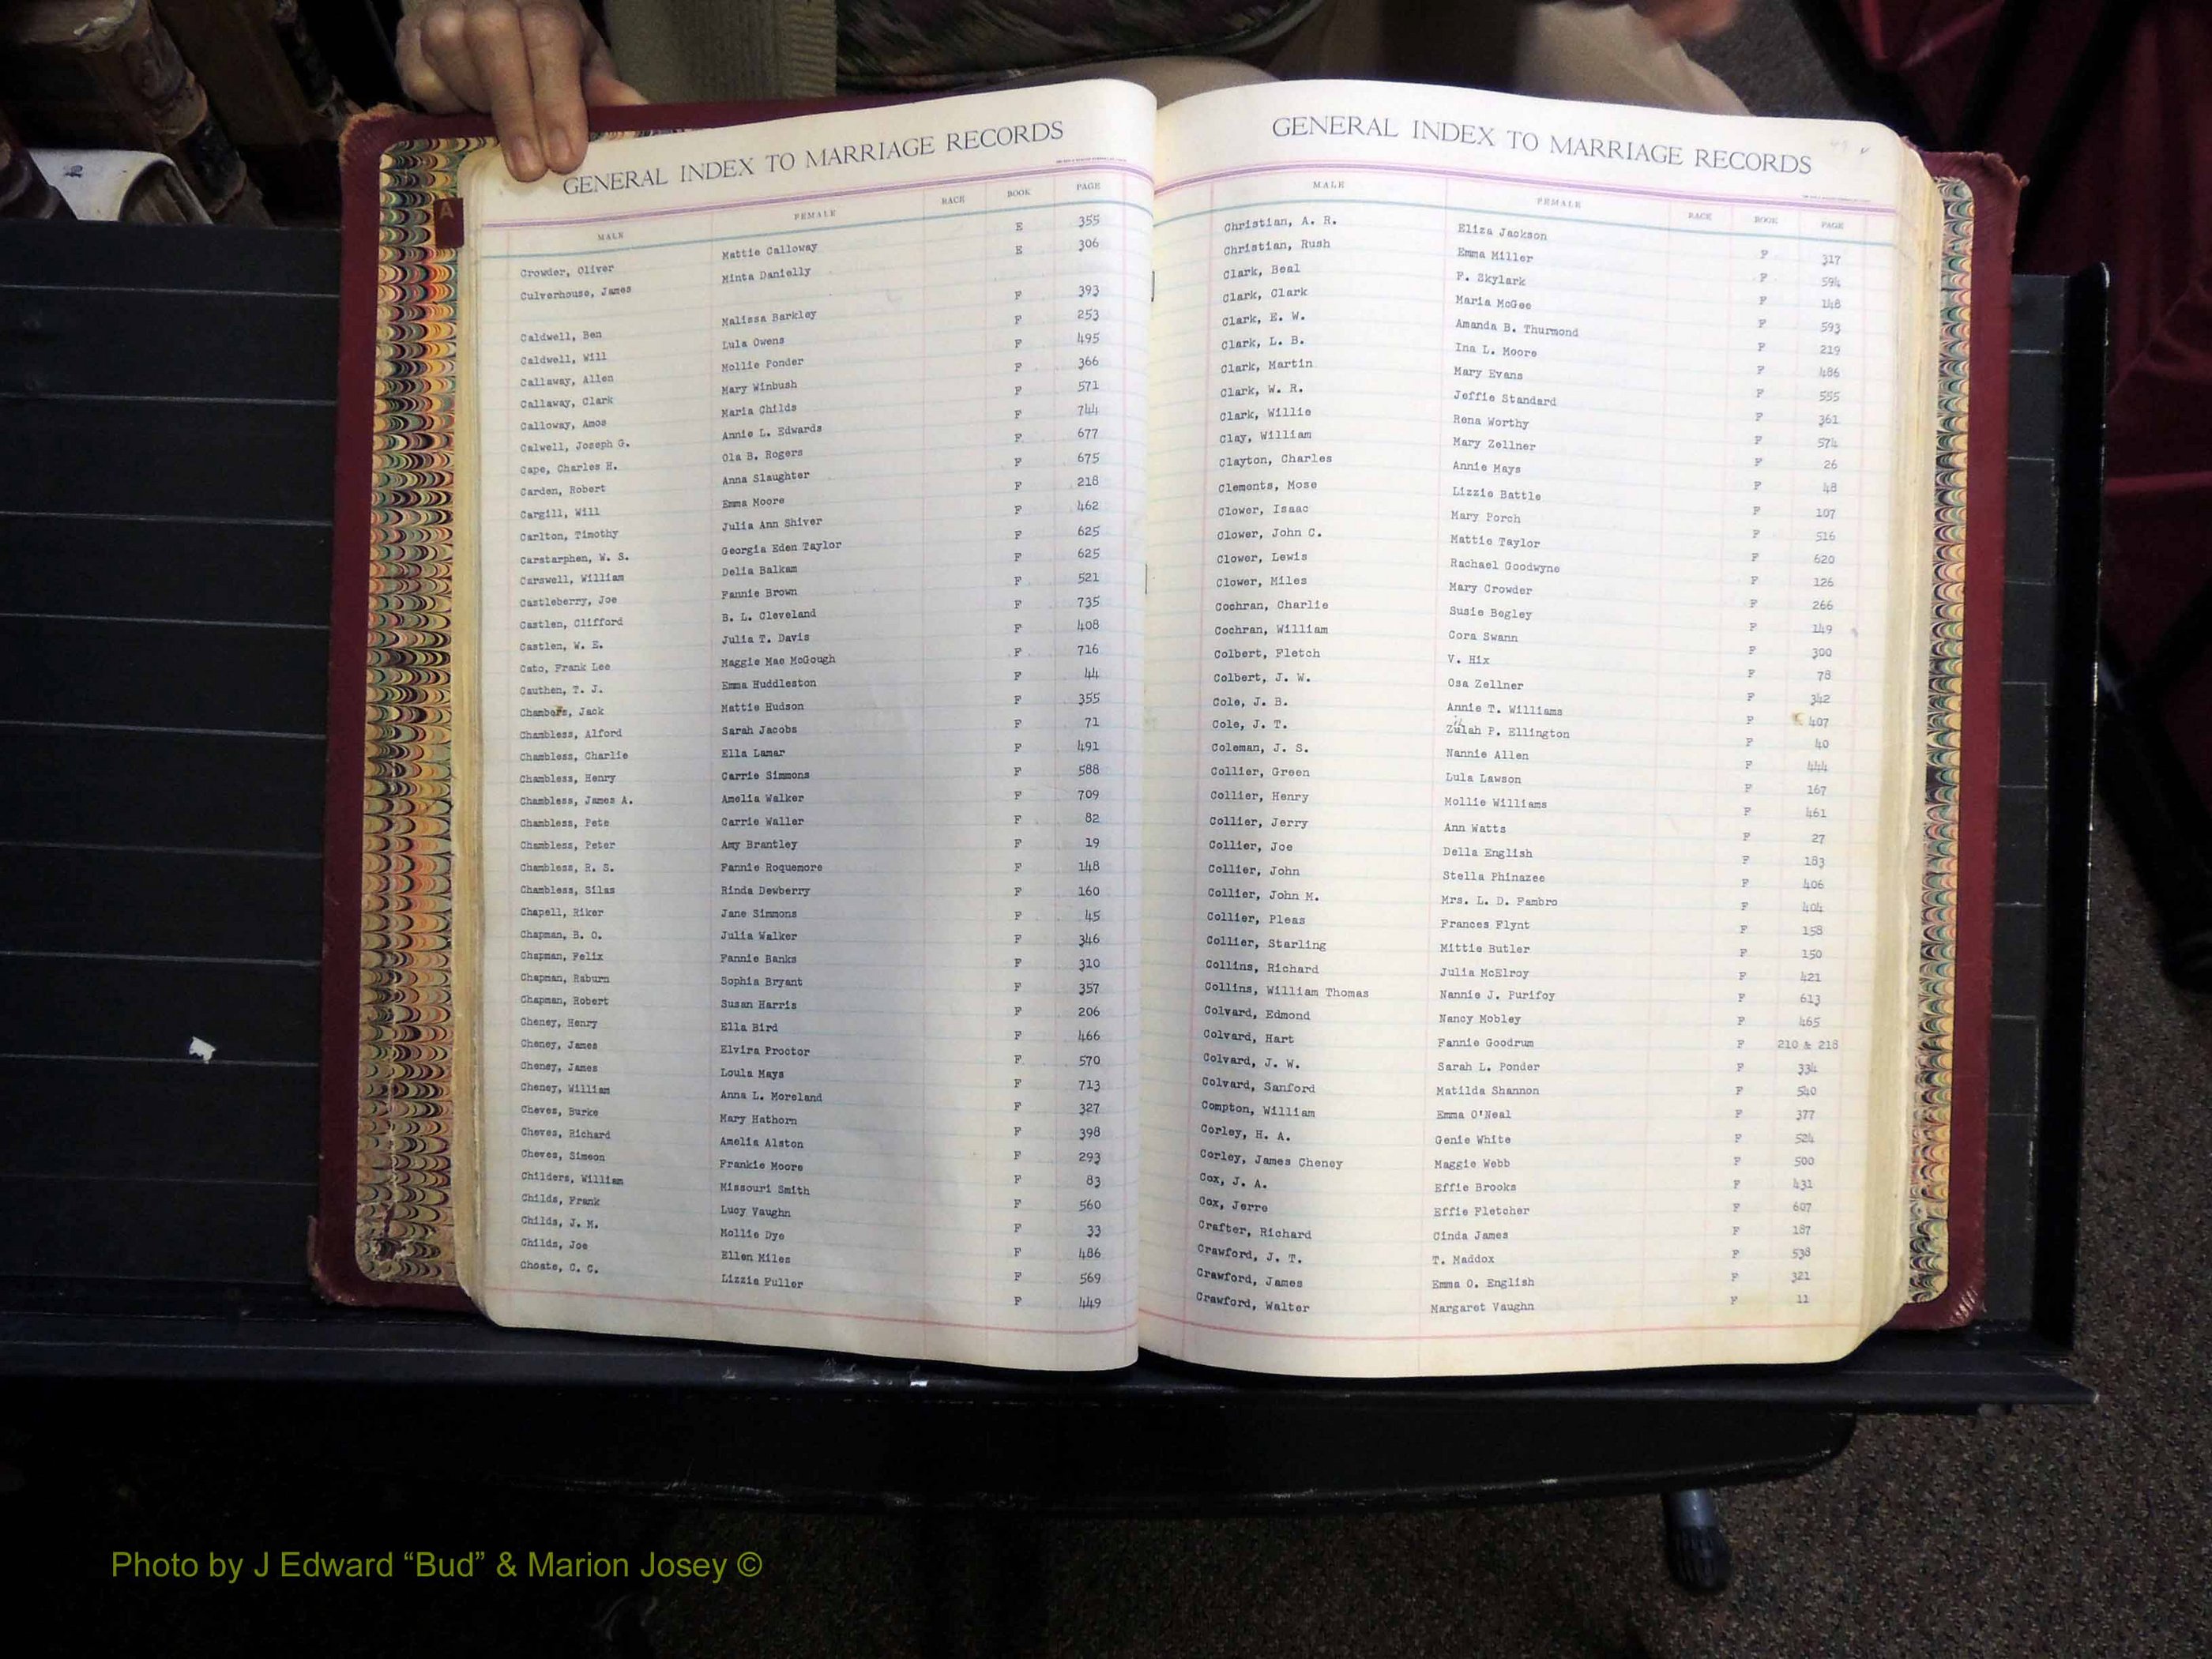 GENERAL INDEX TO MARRIAGE RECORDS
MALE FEMALE RACE BOOK PAGE
Crowder, Oliver Mattie Calloway E 355
Culverhouse, James Minta Danielly E 306
Caldwell, Ben Malissa Barkley F 393
Caldwell, Will Lula Owens F 253
Callaway, Allen Mollie Ponder F 495
Callaway, Clark Mary Winbush F 366
Calloway, Amos Maria Childs F 571
Calwell, Joseph G. Annie L. Edwards F 744
Cape, Charles H. Ola B. Rogers F 677
Carden, Robert Anna Slaughter F 675
Cargill, Will Emma Moore F 218
Carlton, Timothy Julia Ann Shiver F 462
Carstarphen, W. S. Georgia Eden Taylor F 625
Carswell, William Delia Balkam F 625
Castleberry, Joe Fannie Brown F 521
Castlen, Clifford B. L. Cleveland F 735
Castlen, W. E. Julia T. Davis F 408
Cato, Frank Lee Maggie Mae McGough F 716
Cauthen, T. J. Emma Huddleston F 44
Chambers, Jack Mattie Hudson F 355
Chambless, Alford Sarah Jacobs F 71
Chambless, Charlie Ella Lamar F 491
Chambless, Henry Carrie Simmons F 588
Chambless, James A. Amelia Walker F 709
Chambless, Pete Carrie Waller F 82
Chambless, Peter Amy Brantley F 19
Chambless, R. S. Fannie Roquemore F 148
Chambless, Silas Rinda Dewberry F 160
Chapell, Riker Jane Simmons F 45
Chapman, B. O. Julia Walker F 346
Chapman, Felix Fannie Banks F 310
Chapman, Raburn Sophia Bryant F 357
Chapman, Robert Susan Harris F 206
Cheney, Henry Ella Bird F 466
Cheney, James Elvira Proctor F 570
Cheney, James Loula Mays F 713
Cheney, William Anna L. Moreland F 327
Cheves, Burke Mary Hathorn F 398
Cheves, Richard Amelia Alston F 293
Cheves, Simeon Frankie Moore F 83
Childers, William Missouri Smith F 560
Childs, Frank Lucy Vaughn F 33
Childs, J. M. Mollie Dye F 486
Childs, Joe Ellen Miles F 569
Choate, C. C. Lizzie Fuller F 449
GENERAL INDEX TO MARRIAGE RECORDS
MALE FEMALE RACE BOOK PAGE
Christian, A. R. Eliza Jackson F 317
Christian, Rush Emma Miller F 594
Clark, Beal F. Skylark F 148
Clark, Clark Maria McGee F 593
Clark, E. W. Amanda B. Thurmond F 219
Clark, L. B. Ina L. Moore F 486
Clark, Martin Mary Evans F 555
Clark, W. R. Jeffie Standard F 361
Clark, Willie Rena Worthy F 574
Clay, William Mary Zellner F 26
Clayton, Charles Annie Mays F 48
Clements, Mose Lizzie Battle F 107
Clower, Isaac Mary Porch F 516
Clower, John C. Mattie Taylor F 620
Clower, Lewis Rachael Goodwyne F 126
Clower, Miles Mary Crowder F 266
Cochran, Charlie Susie Begley F 149
Cochran, William Cora Swann F 300
Colbert, Fletch V. Hix F 78
Colbert, J. W. Osa Zellner F 342
Cole, J. B. Annie T. Williams F 407
Cole, J. T. Zulah P. Ellington F 40
Coleman, J. S. Nannie Allen F 444
Collier, Green Lula Lawson F 167
Collier, Henry Mollie Williams F 461
Collier, Jerry Ann Watts F 27
Collier, Joe Della English F 183
Collier, John Stella Phinazee F 406
Collier, John M. Mrs. L. D. Fambro F 404
Collier, Pleas Frances Flynt F 158
Collier, Starling Mittie Butler F 150
Collins, Richard Julia McElroy F 421
Collins, William Thomas Nannie J. Purifoy F 613
Colvard, Edmond Nancy Mobley F 465
Colvard, Hart Fannie Goodrum F 210 & 218
Colvard, J. W. Sarah L. Ponder F 334
Colvard, Sanford Matilda Shannon F 540
Compton, William Emma O'Neal F 377
Corley, H. A. Genie White F 524
Corley, James Cheney Maggie Webb F 500
Cox, J. A. Effie Brooks F 431
Cox, Jerre Effie Fletcher F 607
Crafter, Richard Cinda James F 187
Crawford, J. T. T. Maddox F 538
Crawford, James Emma O. English F 321
Crawford, Walter Margaret Vaughn F 11
A
Photo by J Edward “Bud” & Marion Josey ©